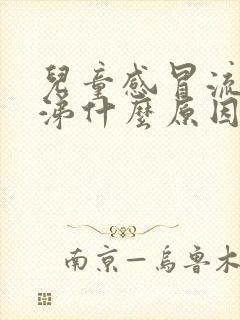 兒童感冒流
涕什麼原因
南京—烏魯木